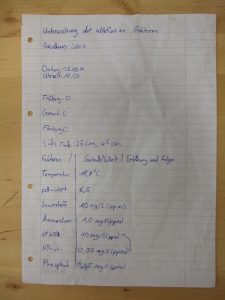 Untersuchung der abiotischen Faktoren
Gewässer:
Datum: 02.09.
Uhrzeit: 11:00
Trübung: 0
Geruch: 0
Färbung: 0
Faktoren / Gehalt/Wert / Erklärung und Folgen
Temperatur 18,8°C
pH-Wert 6,5
10 mg/l (ppm)
Ammonium 1,0 mg/l (ppm)
Nitrat 10 mg/l (ppm)
Nitrit 0,02 mg/l (ppm)
Phosphat mg/l (ppm)